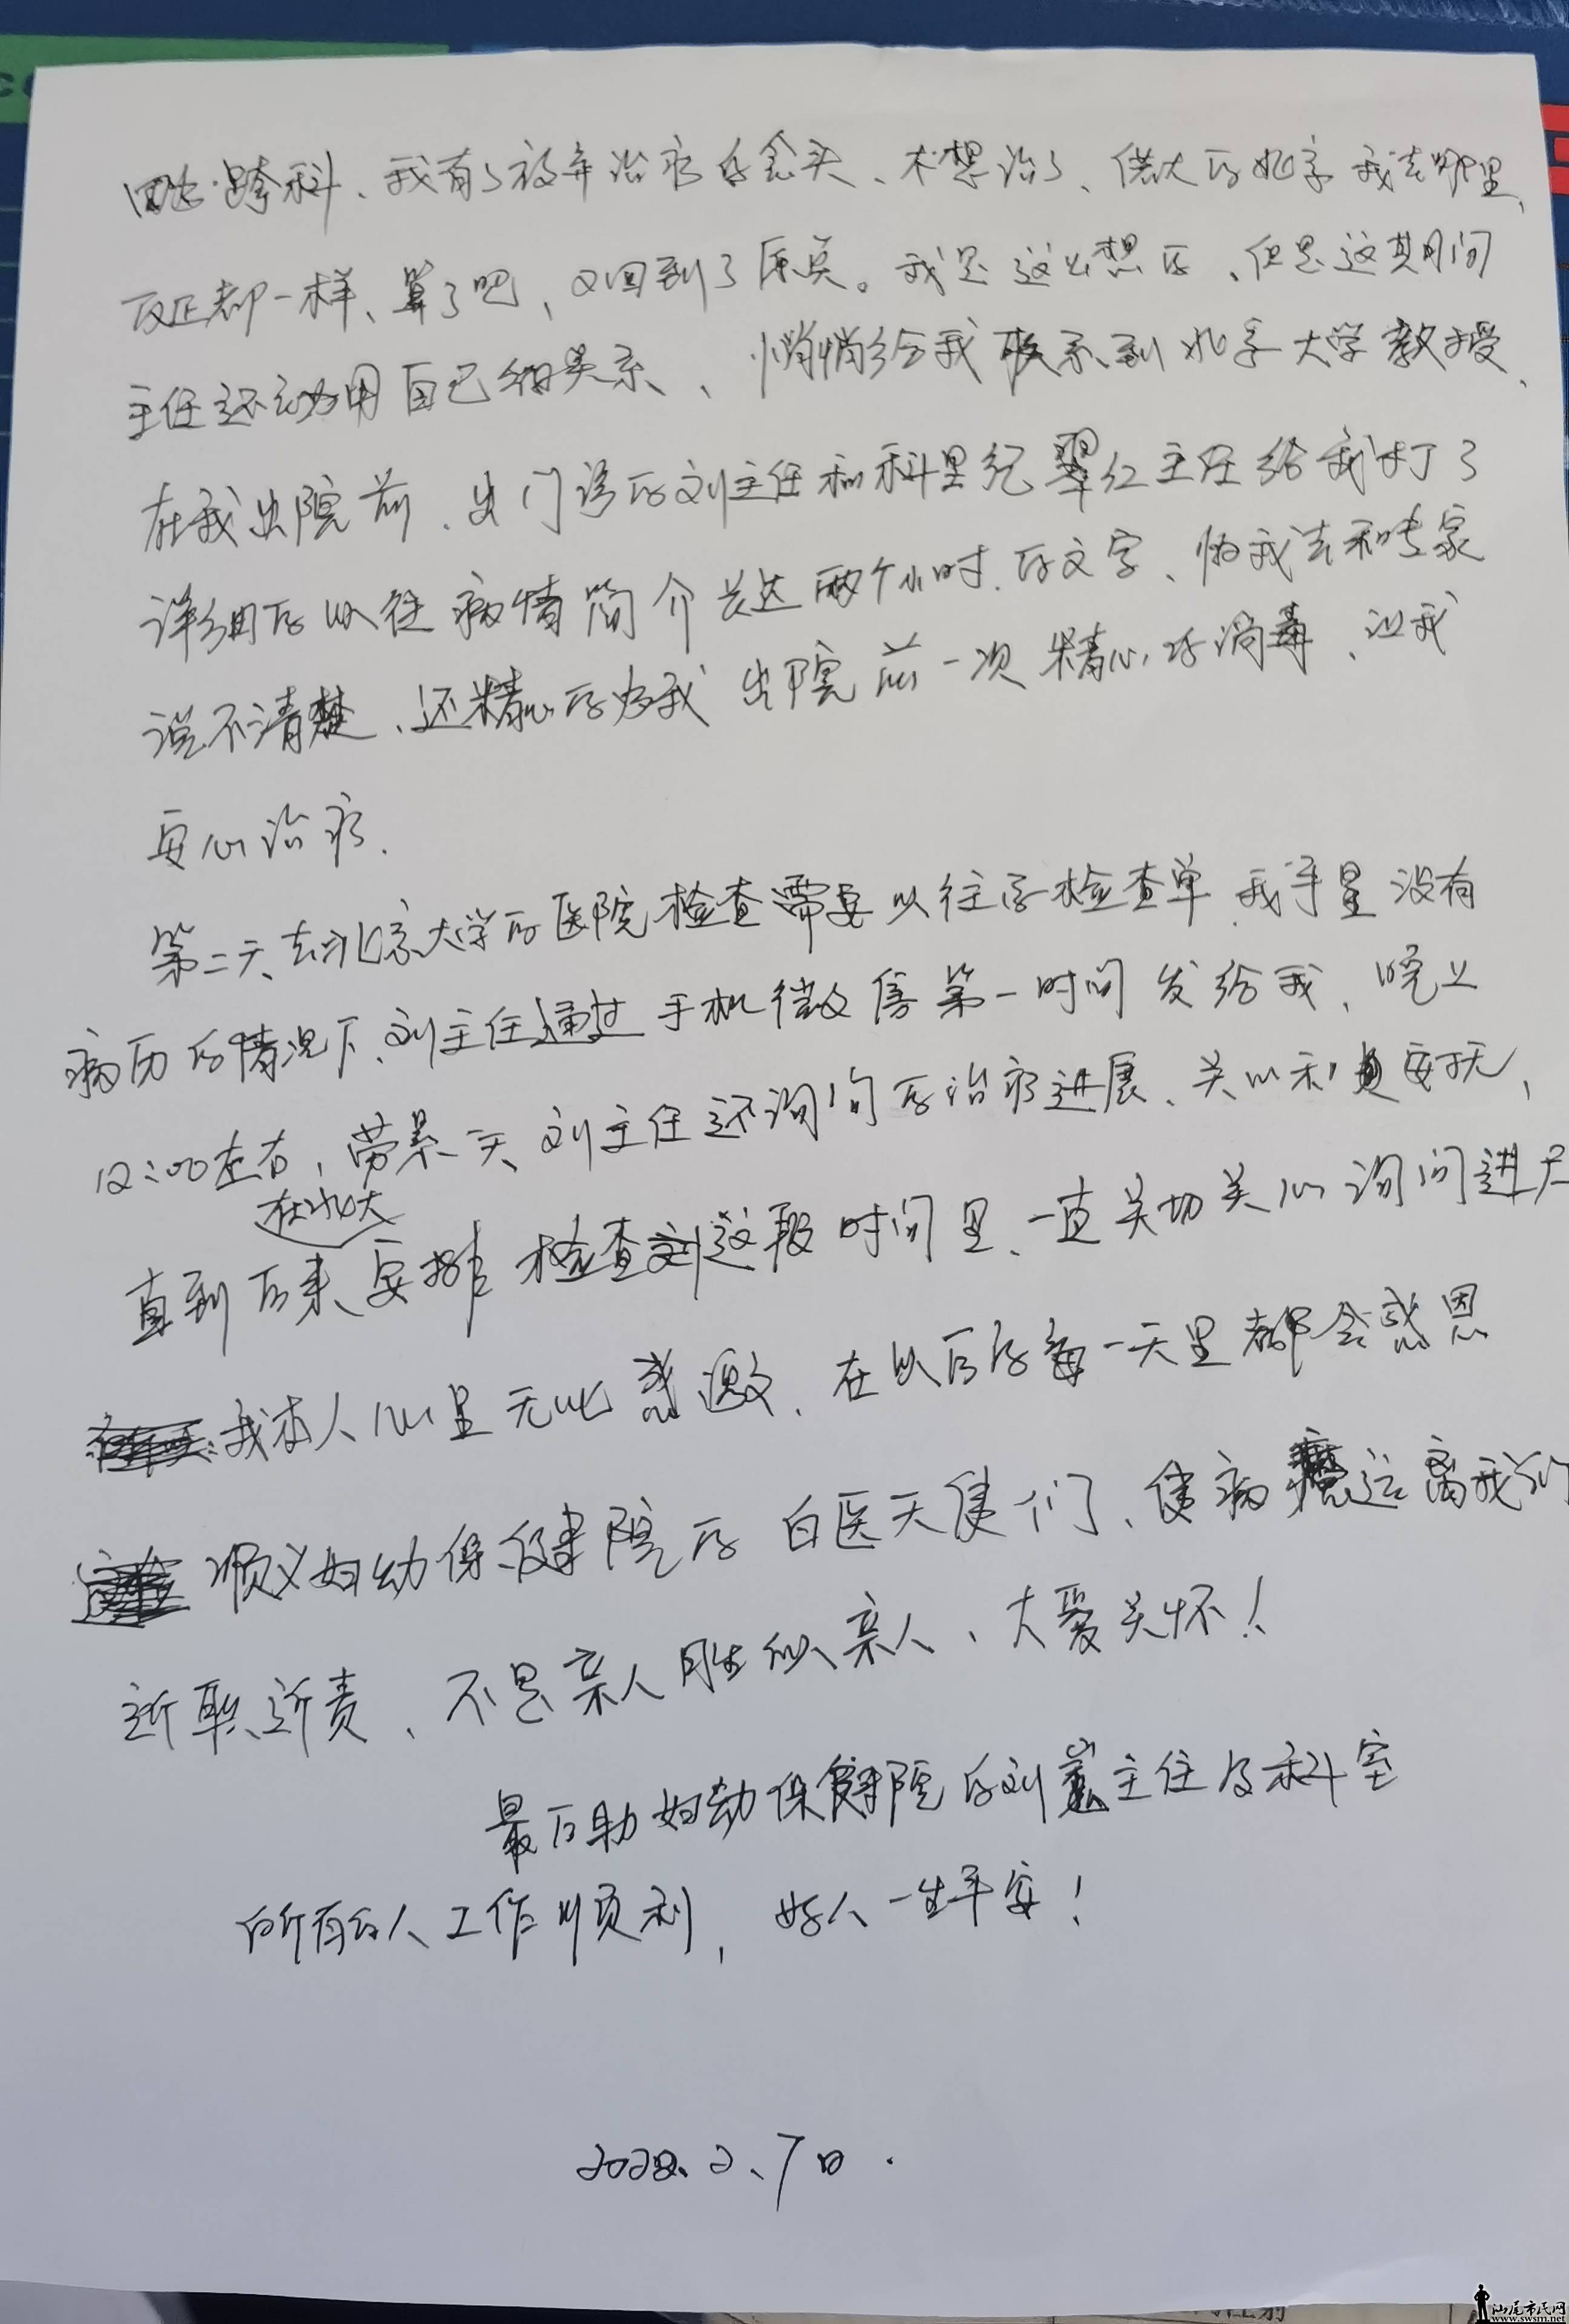 跨科、我有了放弃治疗的念头、不想治了、偌大的北京我去哪里、
反正都一样、算了吧、又回到了原点。我是这么想的、但是这其间
主任还动用自己的关系、悄悄给我联系到北京大学教授、
在我出院前、出门诊的刘主任和科里纪翠红主任给我打了
详细的以往病情简介长达两个小时.的文字、怕我去和专家
说不清楚、还精心的为我出院前一次精心的消毒、让我
安心治疗.
第二天、去北京大学的医院检查需要以往的检查单、我手里没有
病历的情况下、刘主任通过手机微信第一时间发给我、晚上
12:00左右,劳累一天、刘主任还询问的治疗进展、关心和安抚,
在北大
直到后来、安排检查到这段时间里、一直关切关心询问进尸
我本人心里无比感激、在以后的每一天里都会感恩
顺义妇幼保健院的白医天使们、使病魔远离我们
尽职尽责、不是亲人胜似亲人、大爱关怀!
最后助妇幼保健院的刘嵩主任及科室
所有的人工作顺利,好人一生平安!
2022、2、7日.
汕尾市民网
www.swsm.net